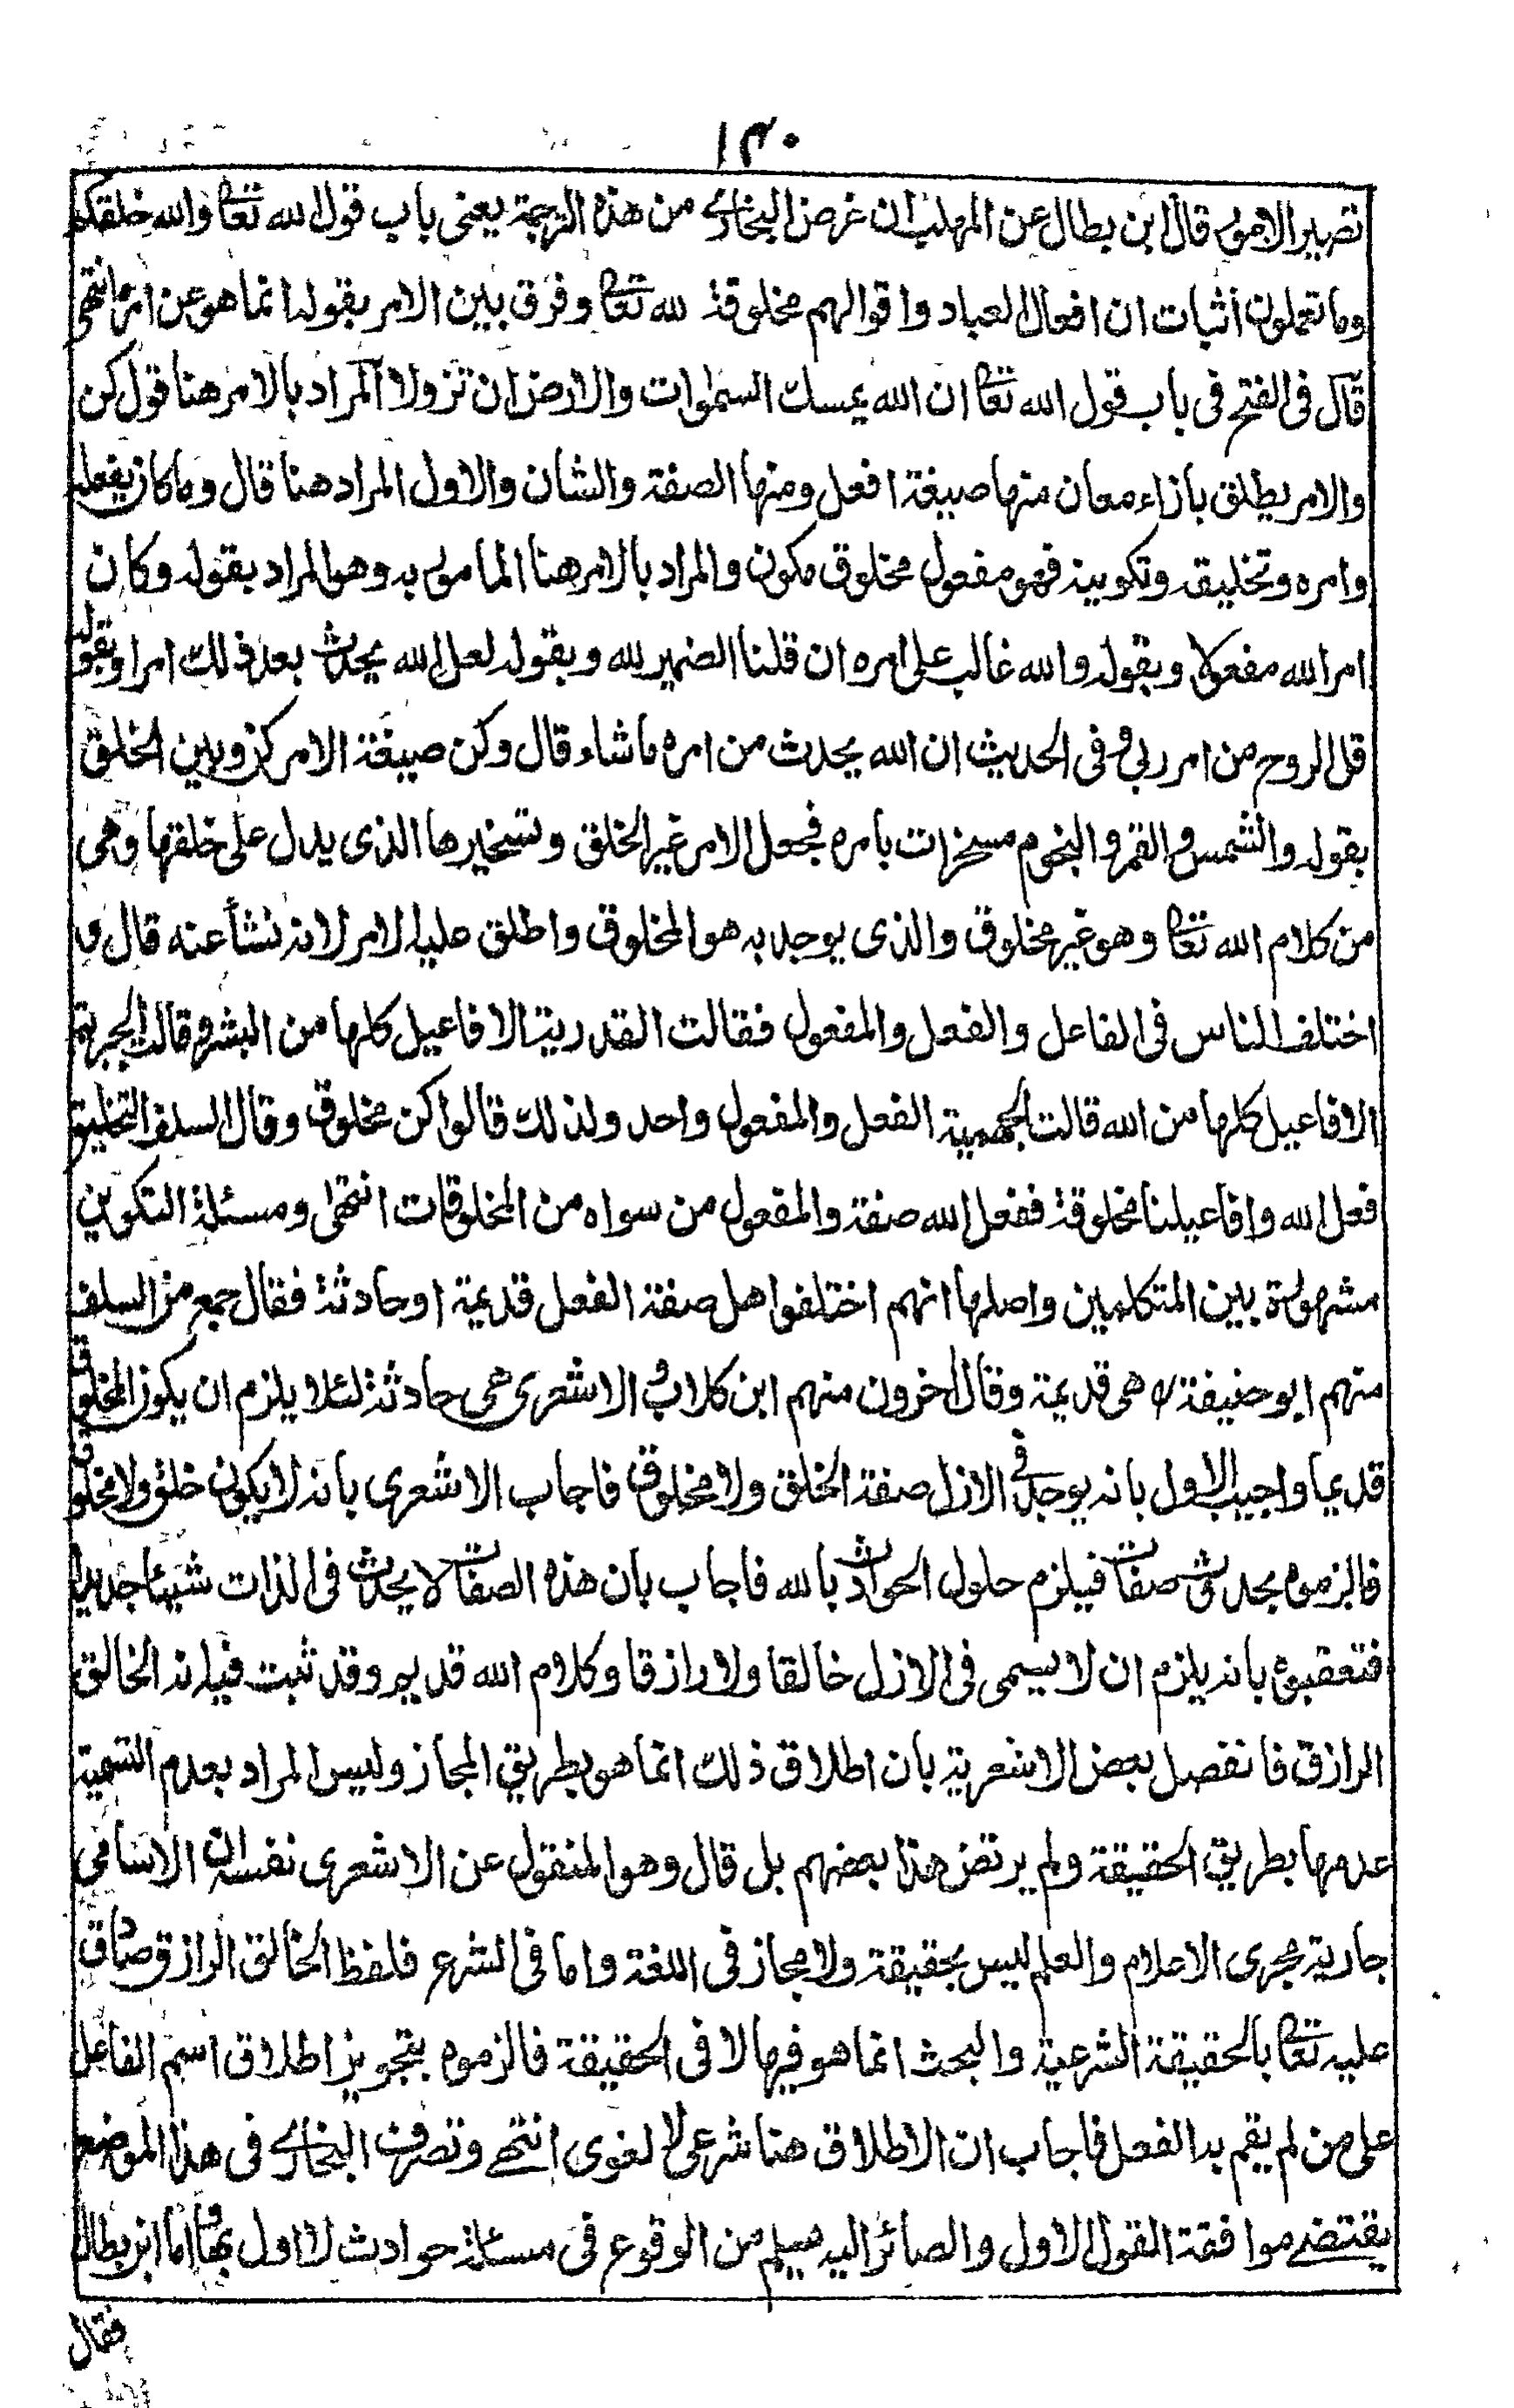 ١٣٠
تصير الامور قال ابن بطال عن المهلب ان غرض البخاري من هذه الترجمة يعني باب قول الله تعا والله خلقكم
وما تعملون اثبات ان افعال العباد واقوالهم مخلوقة لله تعا وفرق بين الامر بقوله انما هو عن امره انتهى
قال فى الفتح فى باب قول الله تعا ان الله يمسك السموات والارض ان تزولا المراد بالامر هنا قول كن
والامر يطلق بازاء معان منها صيغة افعل ومنها الصفة والشان والاول المراد هنا قال وما كان يفعله
وامره وتخليقه وتكوينه فهو مفعول مخلوق مكون والمراد بالامر هنا المامور به وهو المراد بقوله وكان
امر الله مفعولا وبقوله والله غالب على امره ان قلنا الضمير لله وبقوله لعل الله يحدث بعد ذلك امرا وبقوله
قل الروح من امر ربى وفى الحديث ان الله يحدث من امره ما شاء قال وكن صيغة الامر كن وبين الخلق
بقوله والشمس والقمر والنجوم مسخرات بامره فجعل الامر غير الخلق وتسخيرها الذى يدل على خلقها وهى
من كلام الله تعا وهو غير مخلوق والذى يوجد به هو المخلوق واطلق عليه الامر لانه نشأ عنه قال و
اختلف الناس فى الفاعل والفعل والمفعول فقالت القدرية الافاعيل كلها من البشر وقالت الجبرية
الافاعيل كلها من الله قالت الجهمية الفعل والمفعول واحد ولذلك قالوا كن مخلوق وقال السلف التخليق
فعل الله وافاعيلنا مخلوقة ففعل الله صفة والمفعول من سواه من المخلوقات انتهى ومسئلة التكوين
مشهورة بين المتكلمين واصلها انهم اختلفوا هل صفة الفعل قديمة او حادثة فقال جمع من السلف
منهم ابو حنيفة رح هى قديمة وقال اخرون منهم ابن كلاب والاشعرى هى حادثة لئلا يلزم ان يكون المخلوق
قديما واجيب الاول بانه يوجد فى الازل صفة الخلق ولا مخلوق فاجاب الاشعرى بانه لا يكون خلق ولا مخلوق
فالزموه بحدوث صفات فيلزم حلول الحوادث بالله فاجاب بان هذه الصفات لا يحدث فى الذات شيئا جديدا
فتعقبوه بانه يلزم ان لا يسمى فى الازل خالقا ولا رازقا وكلام الله قديم وقد ثبت فيه انه الخالق
الرازق فانفصل بعض الاشعرية بان اطلاق ذلك انما هو بطريق المجاز وليس المراد بعدم التسمية
عدمها بطريق الحقيقة ولم يرتض هذا بعضهم بل قال وهو المنقول عن الاشعرى نفسه ان الاسامى
جارية مجرى الاعلام والعلم ليس بحقيقة ولا مجاز فى اللغة واما فى الشرع فلفظ الخالق الرازق صادق
عليه تعا بالحقيقة الشرعية والبحث انما هو فيها لا فى الحقيقة فالزموه بتجويز اطلاق اسم الفاعل
على من لم يقم به الفعل فاجاب ان الاطلاق هنا شرعى لا لغوى انتهى وتصرف البخاري فى هذا الموضع
يقتضي موافقة القول الاول والصائر اليه يسلم من الوقوع فى مسئلة حوادث لا اول بها واما ابن بطال
فقال